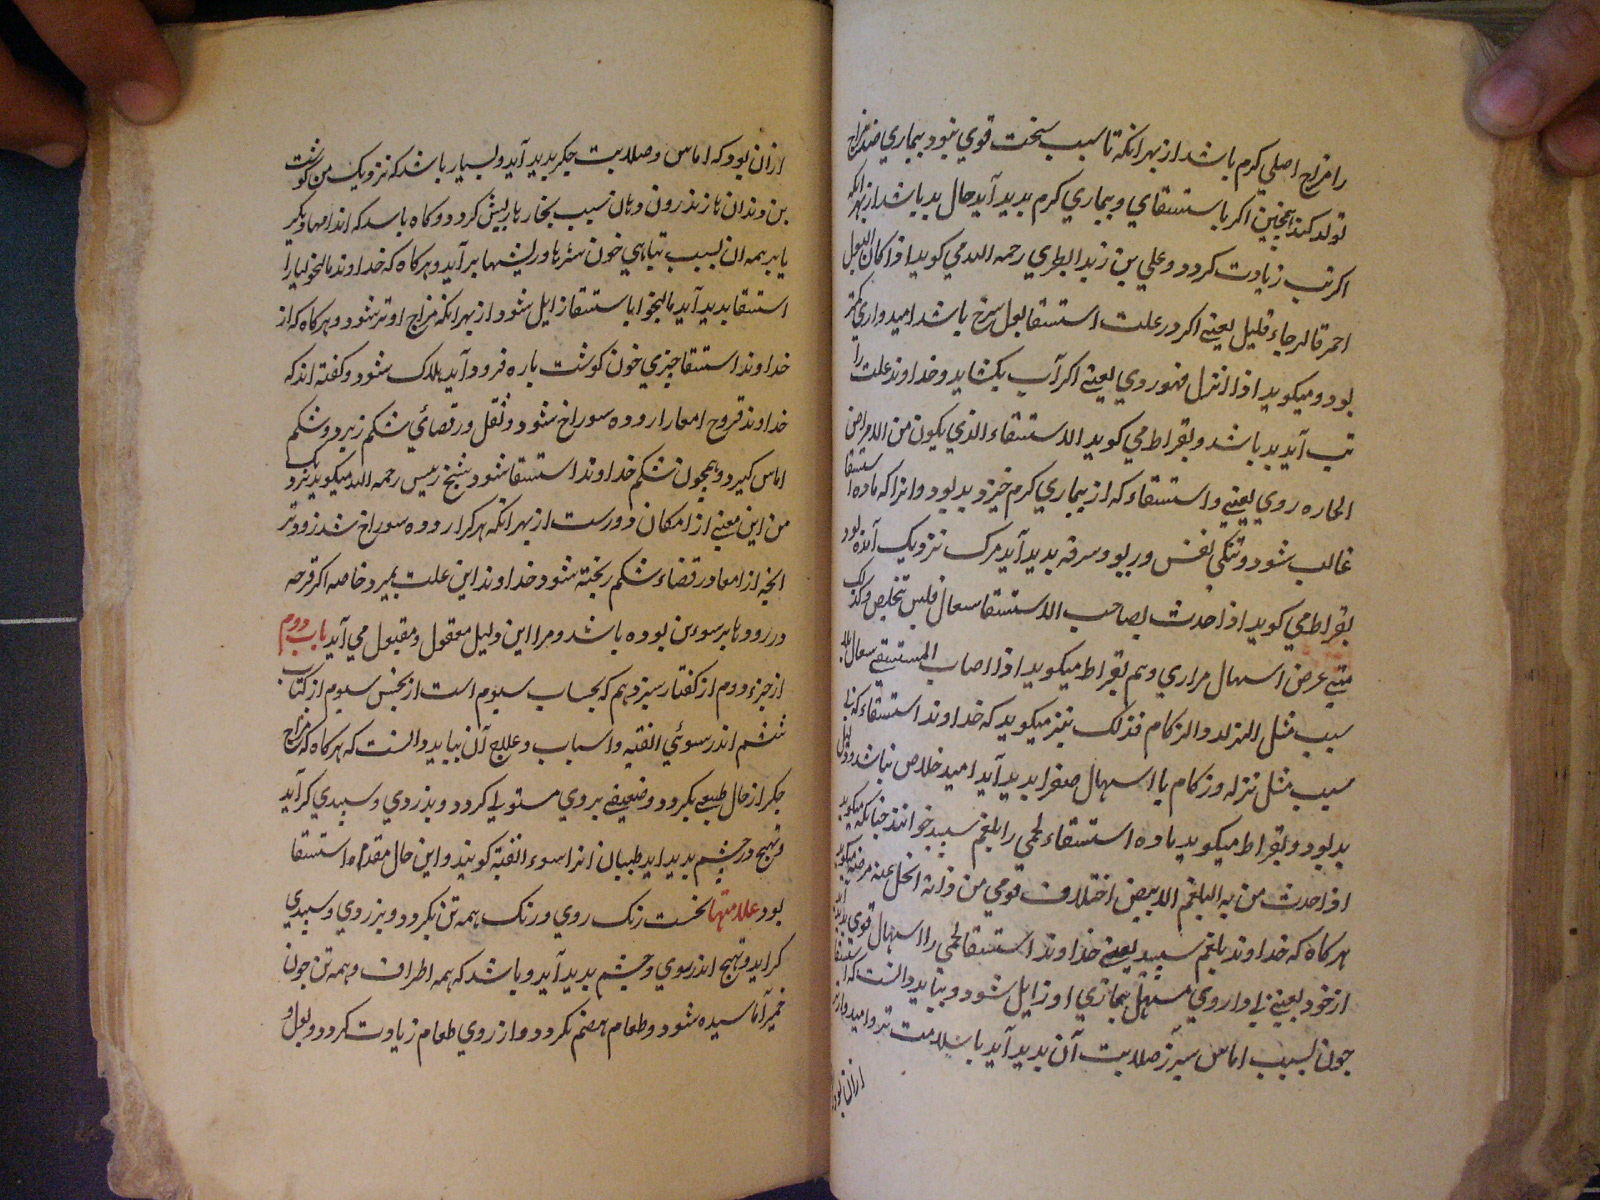 را مزاج اصلي كرم باشد از بهر انكه تا سبب سخت قوي نبود بيماري ضد مزاج
تولد كند همچنين اكر با استسقاي و بيماري كرم بديد آيد حال بد باشد از بهر انكه
اكر تب زيادت كردد و علي بن زيد الطبري رحمه الله مي كويد اذا كان البول
احمر قالرجاء قليل يعني اكر در علت استسقا بول سرخ باشد اميدواري كمتر
بود و ميكويد اذا انزل فهو ردي يعني اكر آب بكشايد و خداوند علت را
تب آيد بد باشد و بقراط مي كويد الاستسقاء الذي يكون من الامراض
الحاره ردي يعني و استسقاء كه از بيماري كرم خيزد بد بود و انرا كه ماده استسقا
غالب شود و تنكي نفس و ربو و سرفه بديد آيد مرك نزديك آمده بود
بقراط مي كويد اذا حدث بصاحب الاستسقا سعال فليس تخلص و كذلك
متي عرض اسهال مراري و هم بقراط ميكويد اذا اصاب المستسقي سعال بلا
سبب مثل النزله و الزكام فذلك نيز ميكويد كه خداوند استسقاء كه بي
سبب مثل نزله و زكام يا اسهال صفرا بديد آيد اميد خلاص نباشد و
بد بود و بقراط ميكويد ماده استسقاء لحمي را بلغم سبيد خوانند چنانكه ميكويد
اذا حدث من به البلغم الابيض اختلاف قوي من ذاته انحل عنه مرضه ميكويد
هر كاه كه خداوند بلغم سبيد يعني خداوند استسقا لحمي را اسهال قوي بديد آيد
از خود يعني بي داروي مسهل بيماري او زايل شود و ببايد دانست كه استسقا
چون بسبب اماس سپرز صلابت آن بديد آيد با سلامت تر و اميدوارتر
ازان بود
ازان بود كه اماس و صلابت جكر بديد آيد و بسيار باشد كه نزديك من كوشت
بن دندان ها از ندرون دهان بسبب بخارها ريش كردد و كاه باسد كه اندامها ديكر
يا بر همه ان بسبب تباهي خون بثرها و ريشها بر آيد و هر كاه كه خداوند ماليخوليا را
استسقا بديد آيد ماليخوليا باستسقا زايل شود از بهر انكه مزاج او تر شود و هر كاه كه از
خداوند استسقا چيزي خون كوشت باره فرود آيد هلاك شود و كفته اند كه
خداوند قروح امعا را روده سوراخ شود و ثقل در قضائي شكم زير دو شكم
اماس كيرد و همچون شكم خداوند استسقا شود شيخ رئيس رحمه الله ميكويد نزديك
من اين معني از امكان دورست از بهر انكه هر كرا روده سوراخ شد زودتر
انچه از امعا در قضاء شكم ريخته شود خداوند اين علت بميرد خاصه اكر قرحه
در رودها برسوين بوده باشد و مرا اين دليل معقول و مقبول مي آيد باب دوم
از جزو دوم از كفتار سيزدهم كه بحساب سيوم است از بخش سيوم از كتاب
ششم اندر سوئي القنيه و اسباب و علاج آن ببايد دانست كه هر كاه كه مزاج
جكر از حال طبيعي بكردد و ضعيفي بر وي مستولي كردد و بزردي و سبيدي كرايد
و تهبج در چشم بديد ايد طبيبان انرا سوء القنيه كويند و اين حال مقدمه استسقا
بود علامتها نخست رنك روي و رنك همه تن بكردد و بزردي و سبيدي
كرايد و تهبج اندر روي و چشم بديد آيد و باشد كه همه اطراف و همه تن چون
خمير آماسيده شود و طعام هضم نكردد و ارزوي طعام زيادت كردد و بول و